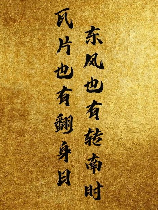 东风也有转南时
瓦片也有翻身日